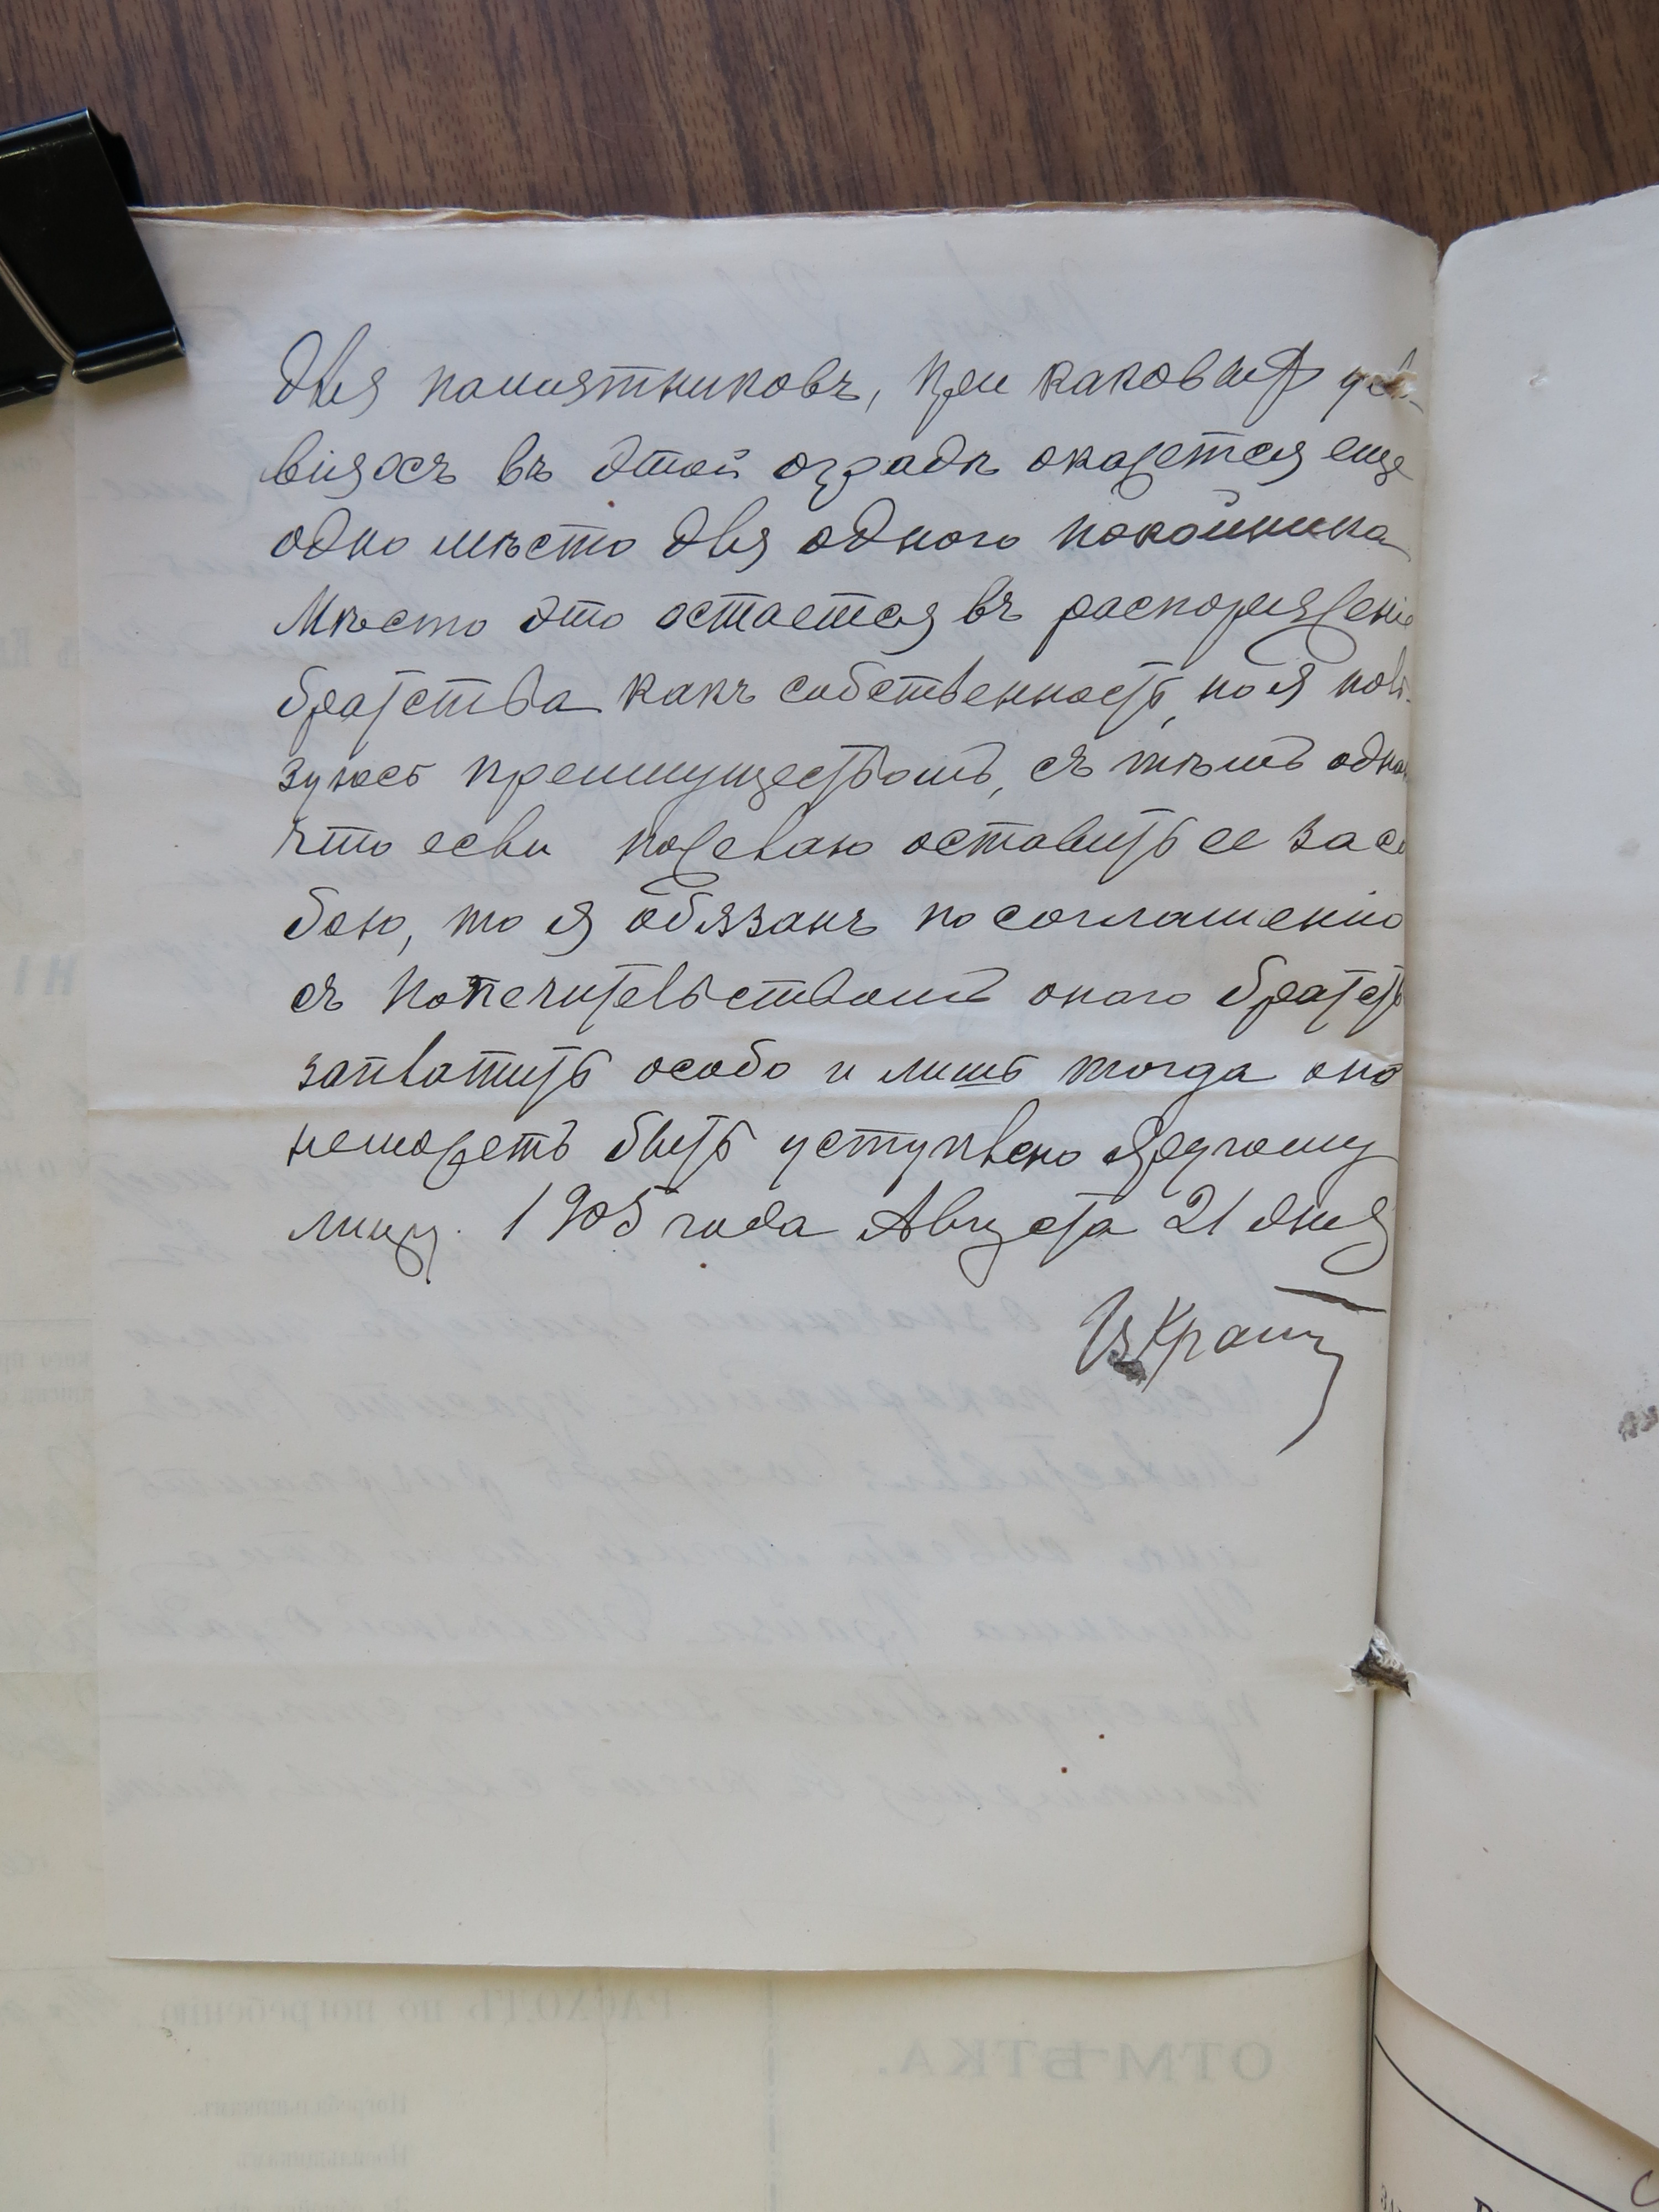 для памятниковъ, при каковыхъ усло-
віяхъ въ этой оградѣ окажется еще
одно мѣсто для одного покойника
Мѣсто это остается въ распоряженіе
братства какъ собственность, но я поль-
зуюсь преимуществомъ, съ тѣмъ однак
что если пожелаю оставить ее за со
бою, то я обязанъ по соглашенію
съ попечительствомъ онаго братст
заплатить особо и лишь тогда оно
неможетъ быть уступлено другому
лицу. 1905 года Августа 21 дня
ОТМѢТКА.
РАСХОДЪ по погребенію